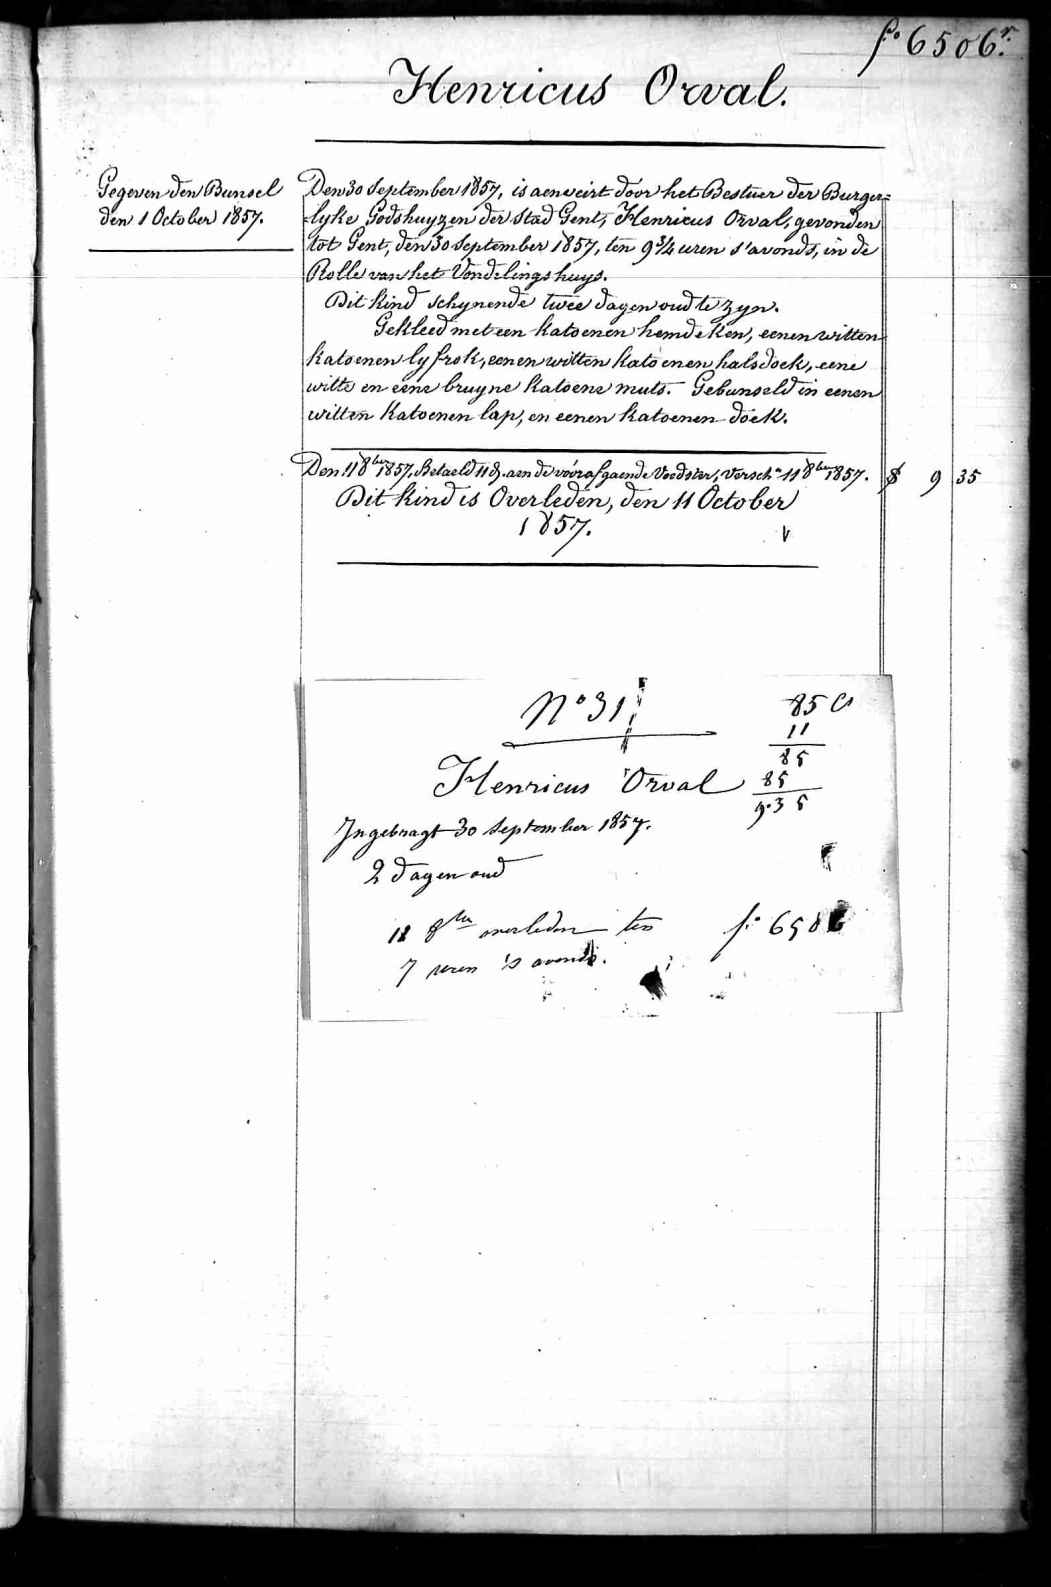 fo 6506 r.
Henricus Orval.
Gegeven den Bunsel
den 1 October 1857.
Den 30 September 1857, is aenveirt door het Bestuer der Burger=
lyke Godshuyzen der stad Gent, Henricus Orval, gevonden
tot Gent, den 30 September 1857, ten 9 3/4 uren s'avonds, in de
Rolle van het Vondelingshuys.
Dit kind schynende twee dagen oud te zyn.
Gekleed met een katoenen hemdeken, eenen witten
katoenen lyfrok, eenen witten katoenen halsdoek, eene
witte en eene bruyne katoene muts. Gebunseld in eenen
witten katoenen lap, en eenen katoenen doek.
Den 11 8ber 1857, Betaeld 11 d. aen de voorafgaende Voedster, Versch.n 11 8ber 1857. 9 35
Dit kind is Overleden, den 11 October
1857.
No 31
85 Cs
11
85
85
9.35
Henricus Orval
Ingebragt 30 September 1857.
2 dagen oud
11 8ber overleden ten
7 uren 's avonds.
fo